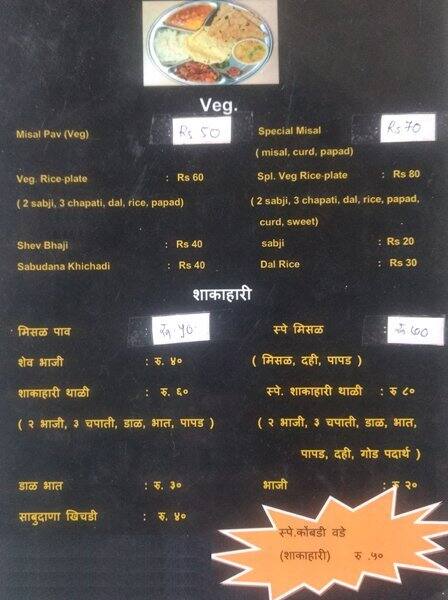 Veg.
Misal Pav (Veg) Rs 50 Special Misal Rs 70
( misal, curd, papad)
Veg. Rice-plate : Rs 60 Spl. Veg Rice-plate : Rs 80
( 2 sabji, 3 chapati, dal, rice, papad) ( 2 sabji, 3 chapati, dal, rice, papad,
curd, sweet)
Shev Bhaji : Rs 40 sabji : Rs 20
Sabudana Khichadi : Rs 40 Dal Rice : Rs 30
शाकाहारी
मिसळ पाव रु. ५० स्पे मिसळ : रु. ७०
शेव भाजी : रु. ४० ( मिसळ, दही, पापड )
शाकाहारी थाळी : रु. ६० स्पे. शाकाहारी थाळी : रु ८०
( २ भाजी, ३ चपाती, डाळ, भात, पापड ) ( २ भाजी, ३ चपाती, डाळ, भात,
पापड, दही, गोड पदार्थ )
डाळ भात : रु. ३० भाजी : रु २०
साबुदाणा खिचडी : रु. ४०
स्पे.कोंबडी वडे
(शाकाहारी) रु .५०